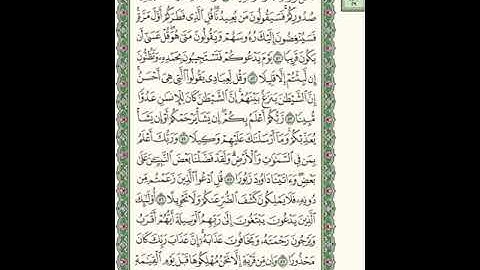 صُدُورِكُمْ ۚ فَسَيَقُولُونَ مَن يُعِيدُنَا ۖ قُلِ ٱلَّذِى فَطَرَكُمْ أَوَّلَ مَرَّةٍ ۚ
فَسَيُنْغِضُونَ إِلَيْكَ رُءُوسَهُمْ وَيَقُولُونَ مَتَىٰ هُوَ ۖ قُلْ عَسَىٰٓ أَن
يَكُونَ قَرِيبًا ۝٥١ يَوْمَ يَدْعُوكُمْ فَتَسْتَجِيبُونَ بِحَمْدِهِۦ وَتَظُنُّونَ
إِن لَّبِثْتُمْ إِلَّا قَلِيلًا ۝٥٢ وَقُل لِّعِبَادِى يَقُولُوا۟ ٱلَّتِى هِىَ أَحْسَنُ ۚ
إِنَّ ٱلشَّيْطَٰنَ يَنزَغُ بَيْنَهُمْ ۚ إِنَّ ٱلشَّيْطَٰنَ كَانَ لِلْإِنسَٰنِ عَدُوًّا
مُّبِينًا ۝٥٣ رَّبُّكُمْ أَعْلَمُ بِكُمْ ۖ إِن يَشَأْ يَرْحَمْكُمْ أَوْ إِن يَشَأْ
يُعَذِّبْكُمْ ۚ وَمَآ أَرْسَلْنَٰكَ عَلَيْهِمْ وَكِيلًا ۝٥٤ وَرَبُّكَ أَعْلَمُ
بِمَن فِى ٱلسَّمَٰوَٰتِ وَٱلْأَرْضِ ۗ وَلَقَدْ فَضَّلْنَا بَعْضَ ٱلنَّبِيِّۦنَ عَلَىٰ
بَعْضٍ ۖ وَءَاتَيْنَا دَاوُۥدَ زَبُورًا ۝٥٥ قُلِ ٱدْعُوا۟ ٱلَّذِينَ زَعَمْتُم مِّن
دُونِهِۦ فَلَا يَمْلِكُونَ كَشْفَ ٱلضُّرِّ عَنكُمْ وَلَا تَحْوِيلًا ۝٥٦ أُو۟لَٰٓئِكَ
ٱلَّذِينَ يَدْعُونَ يَبْتَغُونَ إِلَىٰ رَبِّهِمُ ٱلْوَسِيلَةَ أَيُّهُمْ أَقْرَبُ
وَيَرْجُونَ رَحْمَتَهُۥ وَيَخَافُونَ عَذَابَهُۥٓ ۚ إِنَّ عَذَابَ رَبِّكَ كَانَ
مَحْذُورًا ۝٥٧ وَإِن مِّن قَرْيَةٍ إِلَّا نَحْنُ مُهْلِكُوهَا قَبْلَ يَوْمِ ٱلْقِيَٰمَةِ